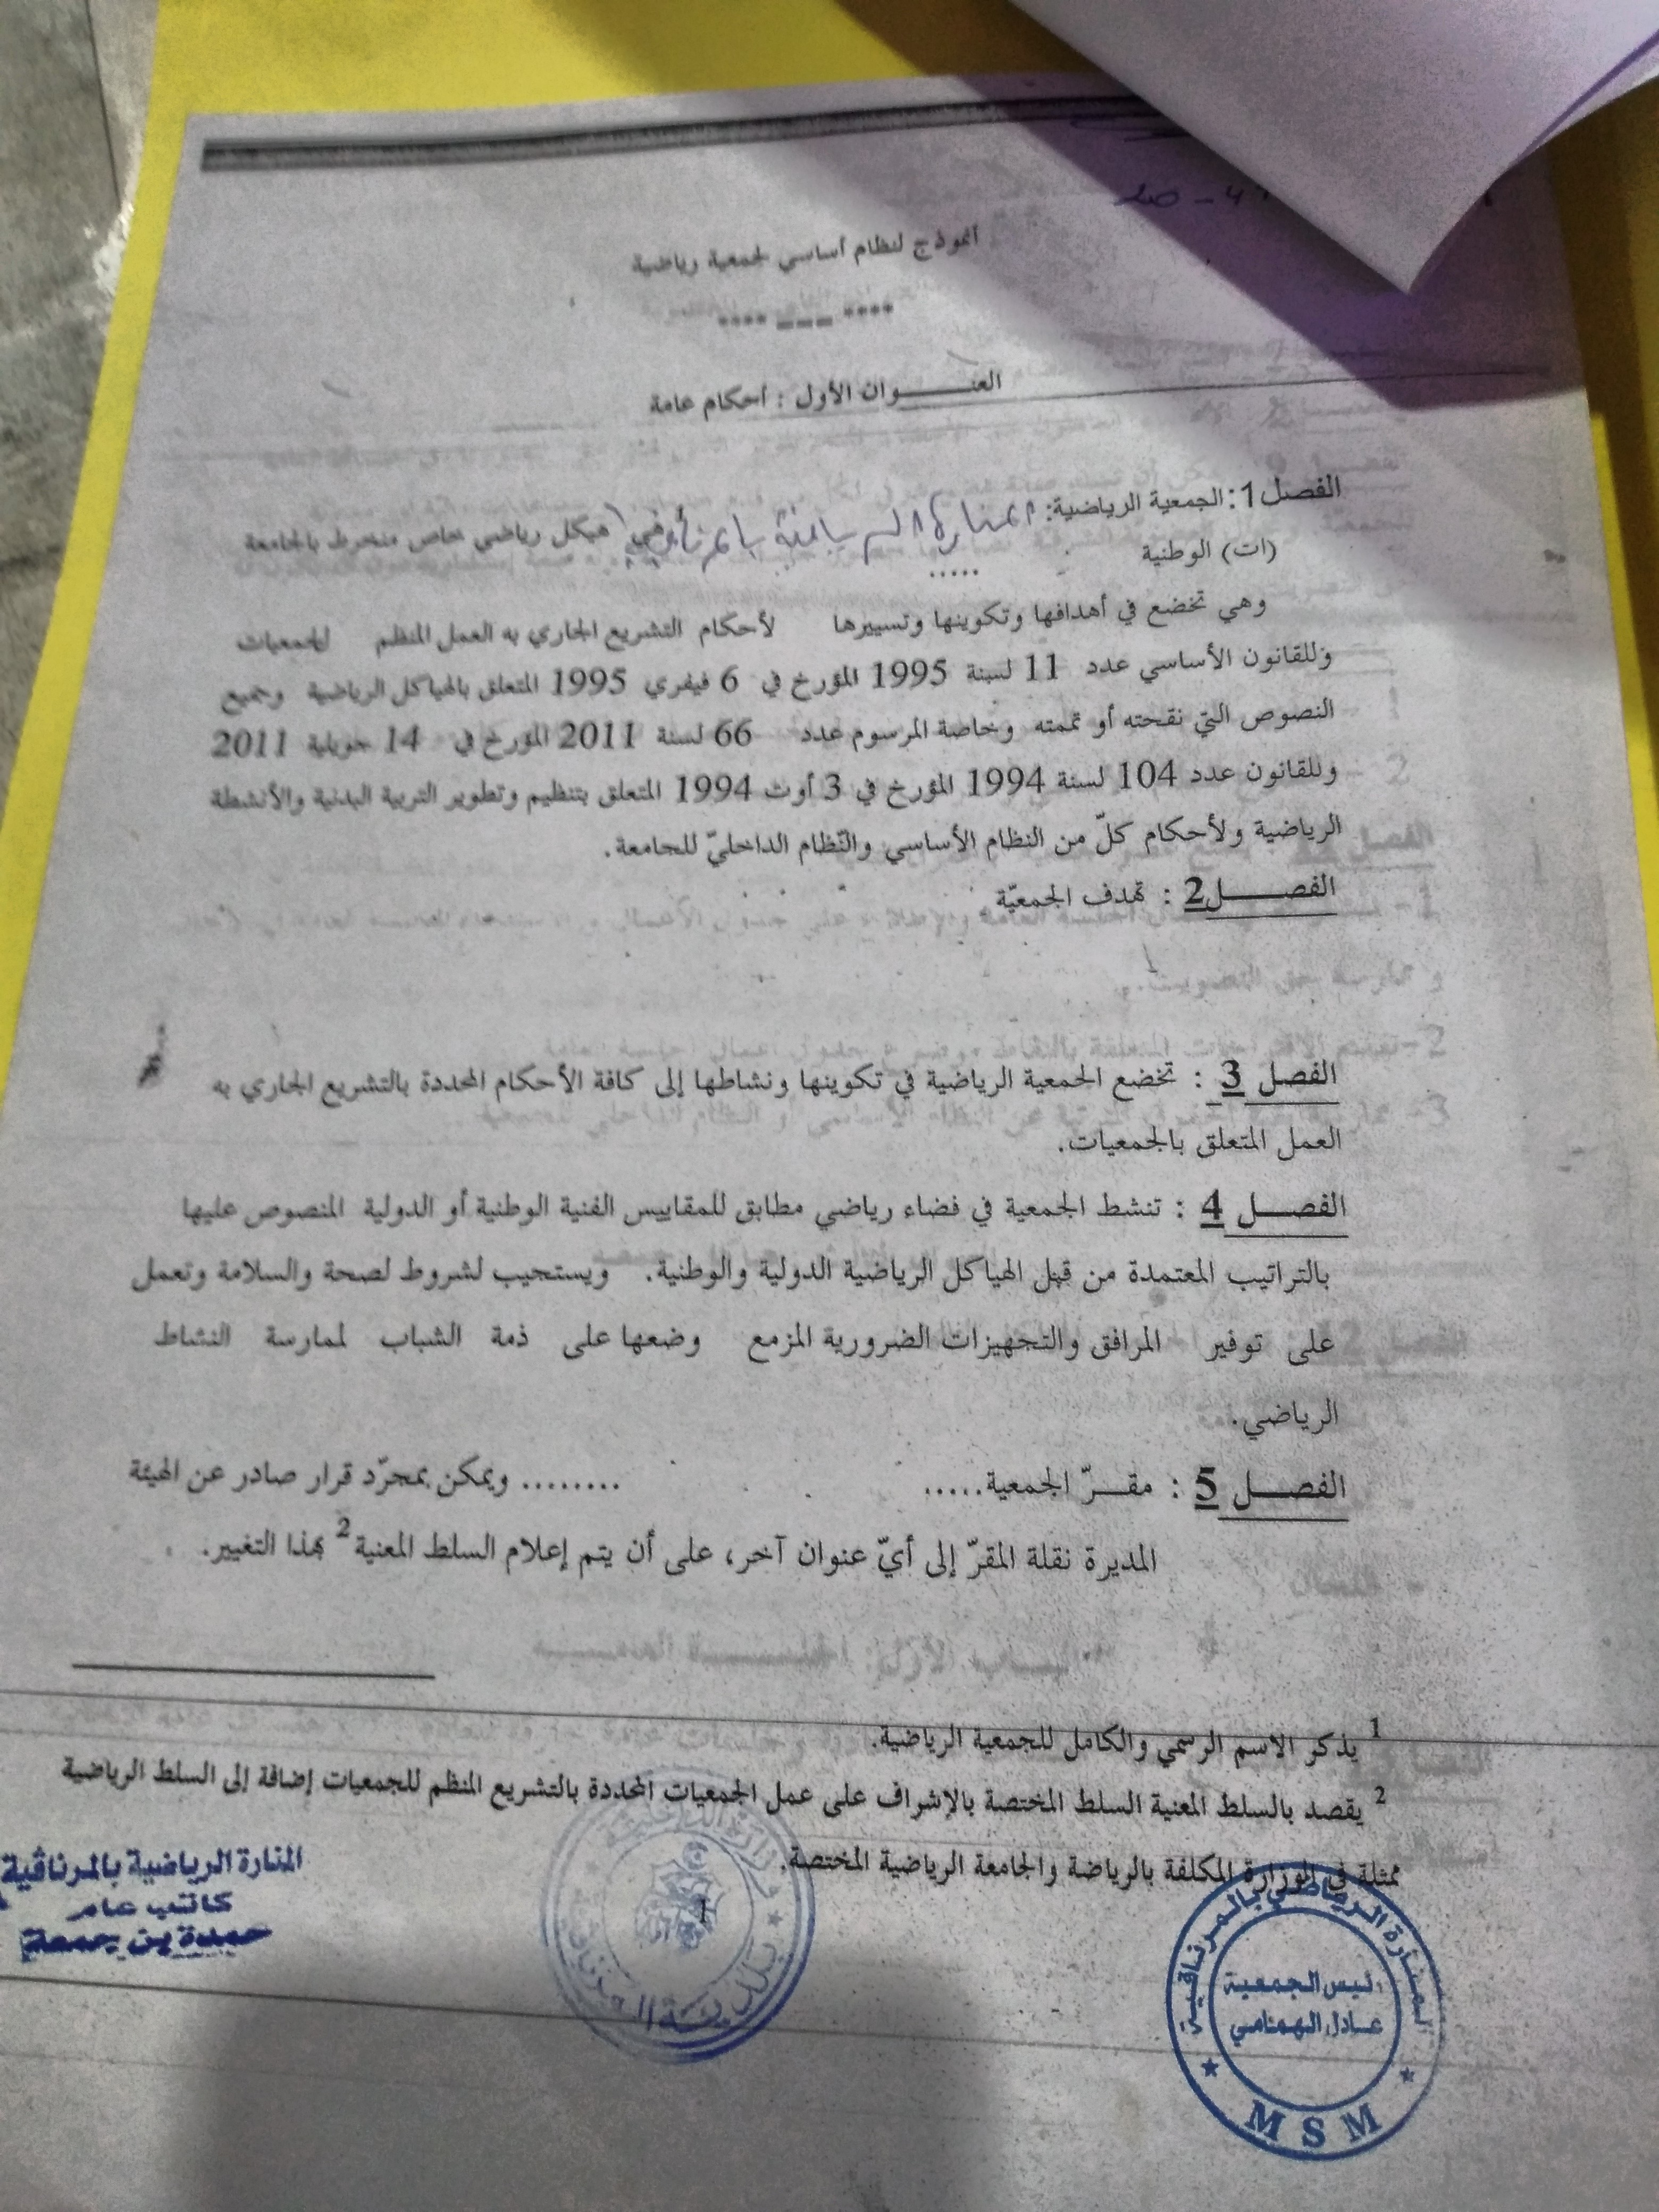 20-4
أنموذج لنظام أساسي لجمعية رياضية
**** --- ****
العنـــــــوان الأول : أحكام عامة
الفصل 1: الجمعية الرياضية: المنارة الرياضية بالمرناقية ¹ هي هيكل رياضي خاص منخرط بالجامعة
(ات) الوطنية .....
وهي تخضع في أهدافها وتكوينها وتسييرها لأحكام التشريع الجاري به العمل المنظم للجمعيات
وللقانون الأساسي عدد 11 لسنة 1995 المؤرخ في 6 فيفري 1995 المتعلق بالهياكل الرياضية وجميع
النصوص التي نقحته أو تممته وخاصة المرسوم عدد 66 لسنة 2011 المؤرخ في 14 جويلية 2011
وللقانون عدد 104 لسنة 1994 المؤرخ في 3 أوت 1994 المتعلق بتنظيم وتطوير التربية البدنية والأنشطة
الرياضية ولأحكام كلّ من النظام الأساسي والنّظام الداخليّ للجامعة.
الفصـــــــل 2 : تهدف الجمعيّة
الفصل 3 : تخضع الجمعية الرياضية في تكوينها ونشاطها إلى كافة الأحكام المحددة بالتشريع الجاري به
العمل المتعلق بالجمعيات.
الفصـــــل 4 : تنشط الجمعية في فضاء رياضي مطابق للمقاييس الفنية الوطنية أو الدولية المنصوص عليها
بالتراتيب المعتمدة من قبل الهياكل الرياضية الدولية والوطنية. ويستجيب لشروط لصحة والسلامة وتعمل
على توفير المرافق والتجهيزات الضرورية المزمع وضعها على ذمة الشباب لممارسة النشاط
الرياضي.
الفصـــــل 5 : مقـــرّ الجمعية..... ........ ويمكن بمجرّد قرار صادر عن الهيئة
المديرة نقلة المقرّ إلى أيّ عنوان آخر، على أن يتم إعلام السلط المعنية ² بهذا التغيير.
¹ يذكر الاسم الرسمي والكامل للجمعية الرياضية.
² يقصد بالسلط المعنية السلط المختصة بالإشراف على عمل الجمعيات المحددة بالتشريع المنظم للجمعيات إضافة إلى السلط الرياضية
ممثلة في الوزارة المكلفة بالرياضة والجامعة الرياضية المختصة.
1
المنارة الرياضية بالمرناقية
كاتب عام
حمدة بن جمعة
بلدية المرناقية
المنارة الرياضي بالمرناقية
رئيس الجمعية
عادل الهمامي
MSM